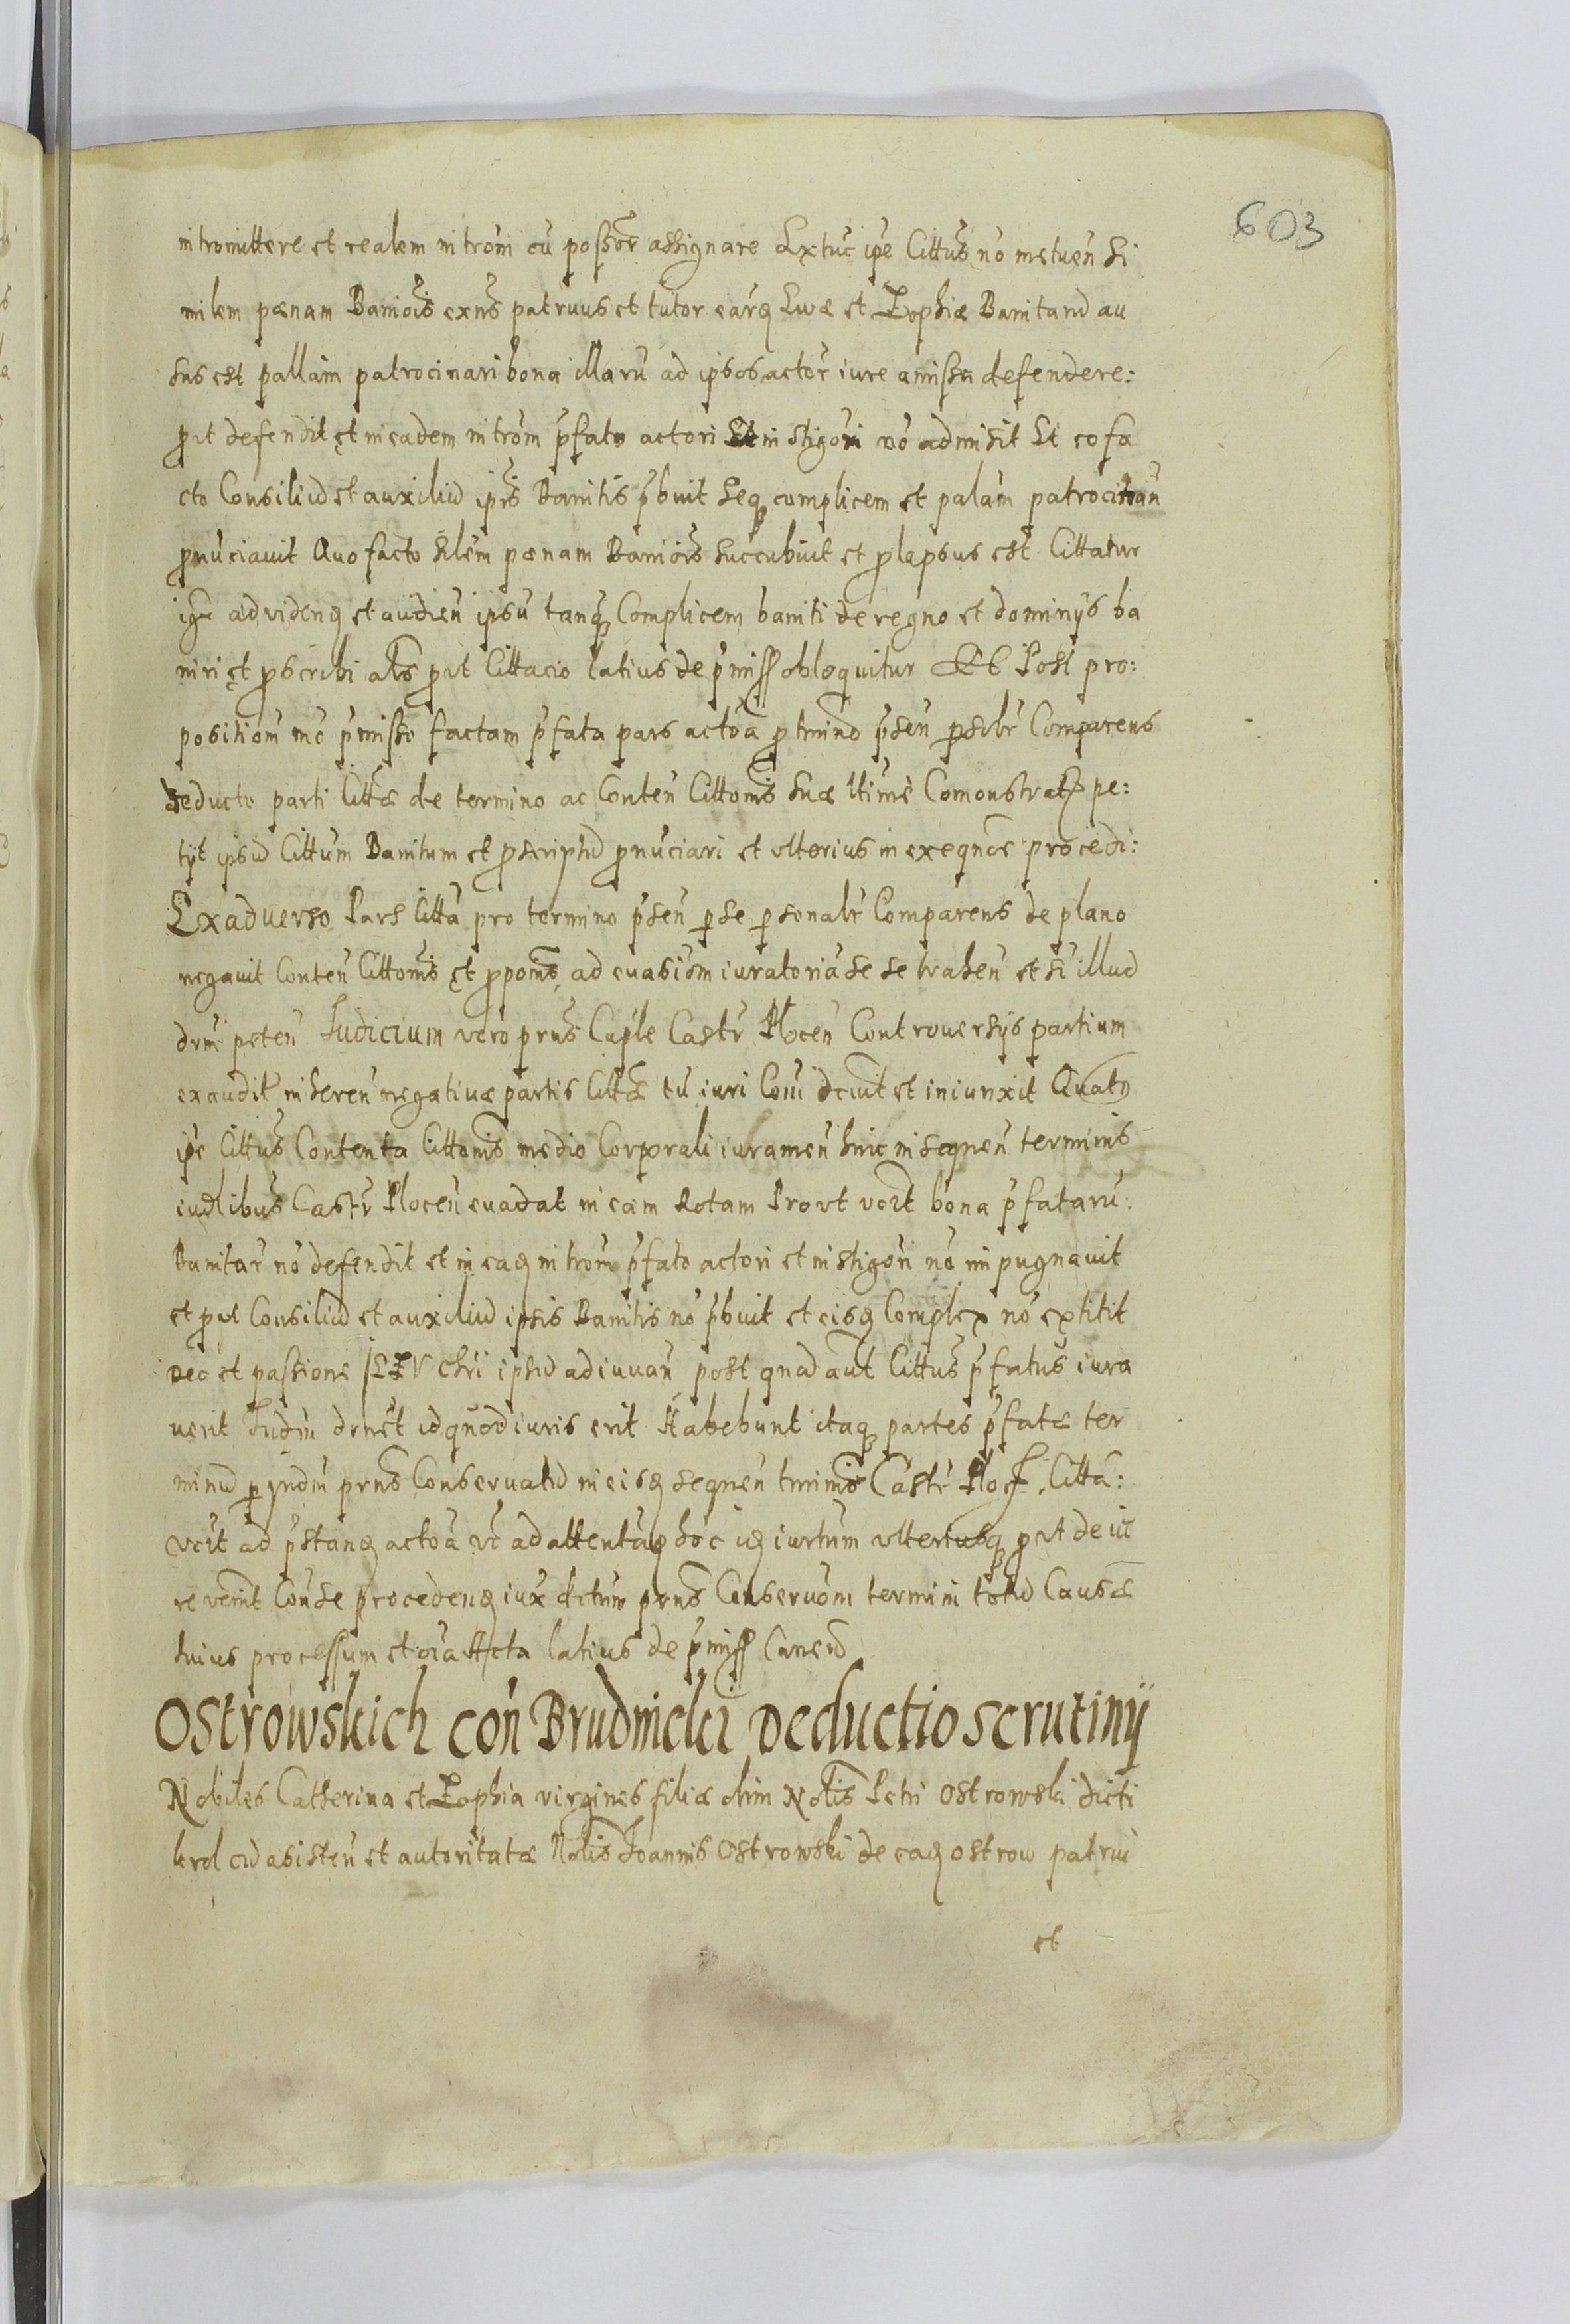 603
intromittere et realem introm̃ cũ possõe assignare Extũc ip̃e Citt9 nõ metueñ Si
milem pœnam Baniõis exñs patruus et tutor earũ Ewæ et Zophiæ Banitarũ au
sus est pallam patrocinari bona illarũ ad ipsos actor̃ iure amissa defendere:
put defendit et in eadem introm̃ p̃fato actori et instigõri nõ admisit Et eo fa
cto Consiliũ et auxiliũ ip̃is Banitis p̃buit Seq3 complicem et palam patrocinañ
pnũciauit Quo facto Silem pœnam Baniõis succubuit et plapsus est Cittatur
igr̃ ad videnđ et audieñ ipsũ tanq3 Complicem baniti de regno et dominijs ba
niri et pscribi als put Cittacio latius de p̃miss obloquitur Et Post pro:
positiõm mõ p̃misso factam p̃fata pars actõa p tmino p̃señ psolr̃ Comparens
deducto parti Cittæ de termino ac Conteñ Cittõnis suæ ltime Comonstrat pe:
tijt ipsũ Cittum Banitum et pscriptũ pnũciari et vlterius in exeqnõe procedi:
Exaduerso Pars Citta pro termino p̃señ p se psonalr̃ Comparens de plano
negauit Conteñ Cittõnis et ppoms ad euasiõm iuratoriã se se traheñ et si illud
drm̃ peteñ Judicium vero prñs Caple Castr̃ Ploceñ Controuersijs partium
exaudit inhereñ negatiuæ partis Cittæ tũ iuri Coĩ decuit et iniunxit Quat9
ip̃e Citt9 Contenta Cittõnis medio Corporali iurameñ hinc in sequeñ terminis
iudlibus Castr̃ Ploceñ euadat in eam Rotam Prout bona p̃fatarũ:
Banitar̃ nõ defendit et in eađ introm̃ p̃fato actori et instigõri nõ impugnauit
et put Consiliũ et auxiliũ ipsis Banitis nõ p̃buit et eisđ Complex nõ extitit
Deo et passione JEZV Chri ipsũ adiuuañ post quađ aut Cittus p̃fatus iura
uerit Judm̃ drnet id quod iuris erit Habebunt itaq3 partes p̃fatæ ter
minũ p Judm̃ prñs Conseruatũ in eisđ sequeñ tminis Castr̃ Ploc. Citta:
ad p̃stanđ actõa vr̃ ad attentanđ hoc iurtum vlteriusq3 put de iu
re venit Conse procedenđ iux dctum prñs Conseruõm termini totũ Causæ
huius processum et oĩa Acta latius de p̃miss Canenđ
Ostrowskich con̄ Brudnicki Deductio scrutinij
Nobiles Catherina et Zophia virgines filiæ olim Nolis Petri Ostrowski dicti
krol cũ asisteñ et autoritatæ Nolis Joannis Ostrowski de eađ Ostrow patrui
et